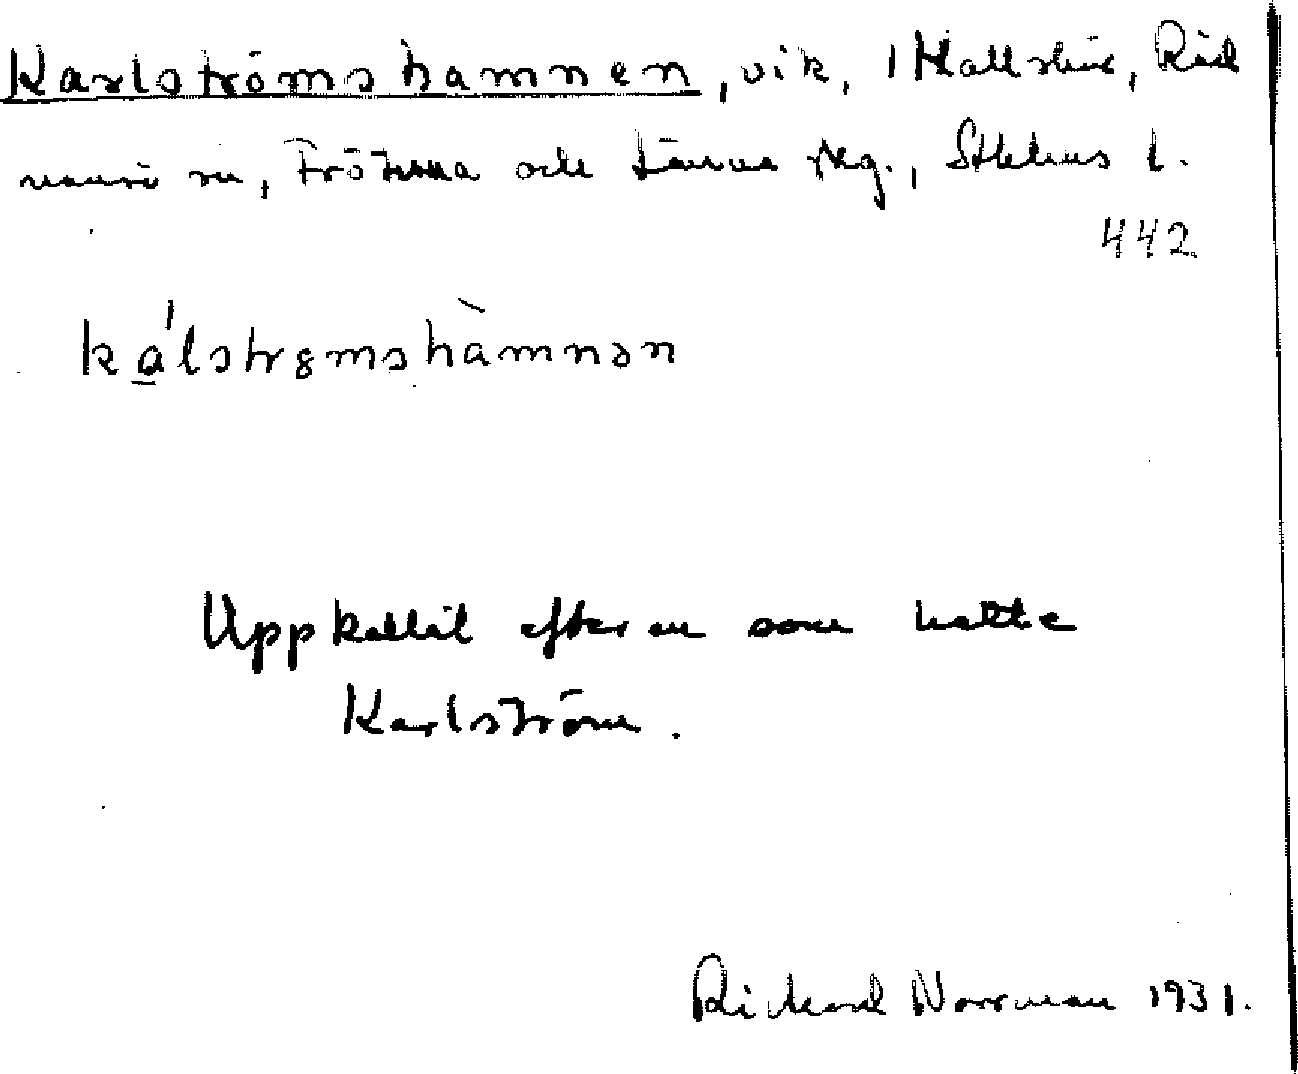 Karlströmshamnen, vik, i Kallskär, Råd
mansö sn, Frötuna och Länna skg., Sthlms l.
442
kálstrɵmshàmnən
Uppkallat efter en som hette
Karlström.
Rickard Norrman 1931.